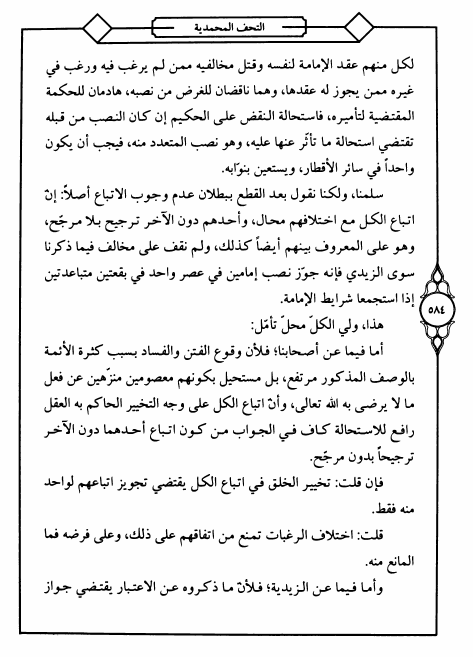 التحف المحمدية
لكل منهم عقد الإمامة لنفسه وقتل مخالفيه ممن لم يرغب فيه ورغب في
غيره ممن يجوز له عقدها، وهما ناقضان للغرض من نصبه، هادمان للحكمة
المقتضية لتأميره، فاستحالة النقض على الحكيم إن كان النصب من قبله
تقتضي استحالة ما تأثّر عنها عليه، وهو نصب المتعدد منه، فيجب أن يكون
واحداً في سائر الأقطار، ويستعين بنوّابه.
سلمنا، ولكنا نقول بعد القطع ببطلان عدم وجوب الاتباع أصلاً: إنّ
اتباع الكل مع اختلافهم محال، وأحدهم دون الآخر ترجيح بلا مرجّح،
وهو على المعروف بينهم أيضاً كذلك، ولم نقف على مخالف فيما ذكرنا
سوى الزيدي فإنه جوّز نصب إمامين في عصر واحد في بقعتين متباعدتين
إذا استجمعا شرايط الإمامة.
٥٨٤
هذا، ولي الكلّ محلّ تأمّل:
أما فيما عن أصحابنا؛ فلأن وقوع الفتن والفساد بسبب كثرة الأئمة
بالوصف المذكور مرتفع، بل مستحيل بكونهم معصومين منزّهين عن فعل
ما لا يرضى به الله تعالى، وأنّ اتباع الكل على وجه التخيير الحاكم به العقل
رافع للاستحالة كاف في الجواب من كون اتباع أحدهما دون الآخر
ترجيحاً بدون مرجّح.
فإن قلت: تخيير الخلق في اتباع الكل يقتضي تجويز اتباعهم لواحد
منه فقط.
قلت: اختلاف الرغبات تمنع من اتفاقهم على ذلك، وعلى فرضه فما
المانع منه.
وأما فيما عن الزيدية؛ فلأنّ ما ذكروه عن الاعتبار يقتضي جواز